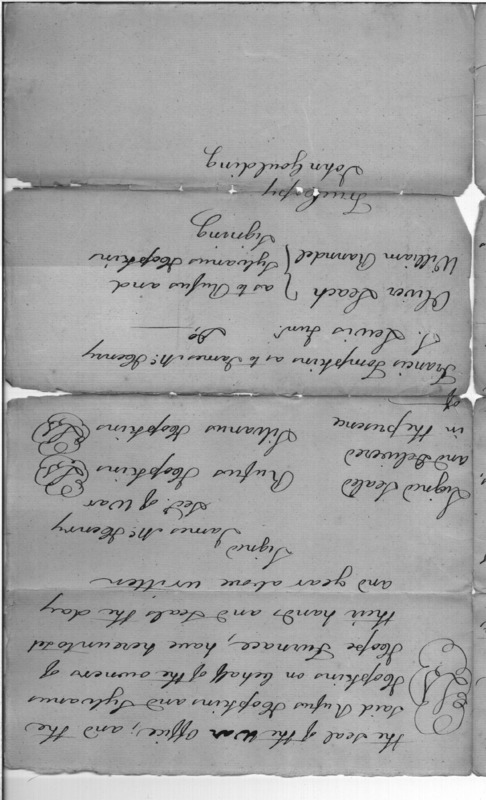 the seal of the War Office; and the
said Rufus Hopkins and Sylvanus
Hopkins on behalf of the owners of
Hope Furnace, have hereunto set
their hands and seals the day
and year above written
Signed
James McHenry
Secy. of War
Signed Sealed
and Delivered
in the presence
of
Rufus Hopkins LS
Silvanus Hopkins LS
Francis Tompkins as to James McHenry
S. Lewis Junr. Do.
Oliver Leach } as to Rufus and
William Ranndel } Sylvanus Hopkins
Signing
True Copy
John Goulding